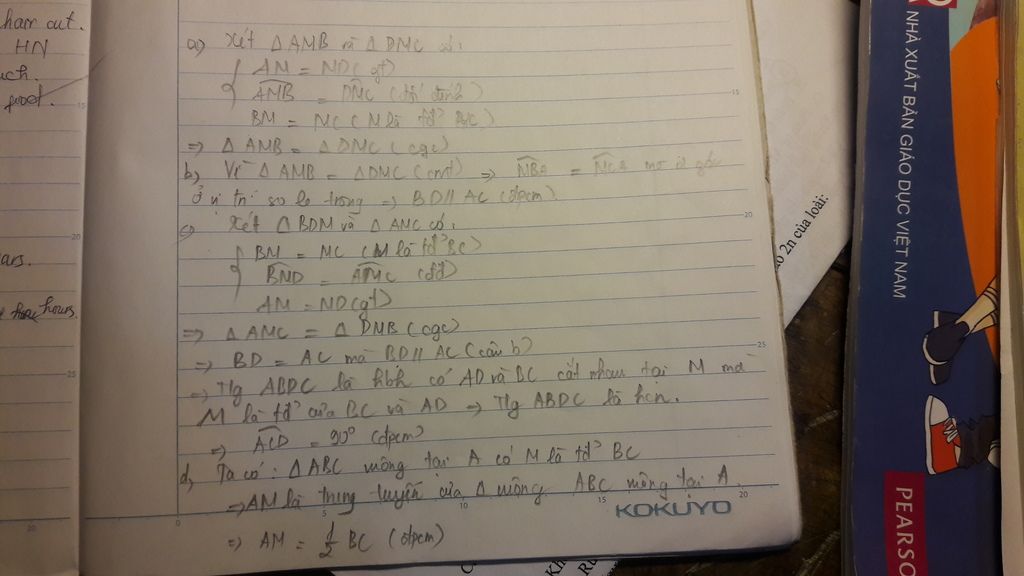 ham out.
HN
uch.
proof.
ars.
hours.
a) Xét Δ AMB và Δ DMC có:
AM = MD (gt)
AMB = DMC (đối đỉnh)
BM = MC (M là tđ' BC)
=> Δ AMB = Δ DMC (cgc)
b) Vì Δ AMB = ΔDMC (cmt) =>
ở vị trí so le trong => BD // AC (đpcm)
c) Xét Δ BDM và Δ AMC có:
BM = MC (M là tđ' BC)
BMD = AMC (đđ)
AM = MD (gt)
=> Δ AMC = Δ DMB (cgc)
=> BD = AC mà BD // AC (câu b)
=> Tg ABDC là hbh có AD và BC cắt nhau tại M mà
M là tđ' của BC và AD => Tg ABDC là hcn.
=> ACD = 90° (đpcm)
d, Ta có: Δ ABC vuông tại A có M là tđ' BC
=> AM là trung tuyến của Δ vuông ABC vuông tại A
=> AM = 1/2 BC (đpcm)
KOKUYO
NHÀ XUẤT BẢN GIÁO DỤC VIỆT NAM
PEARSO
o 2n của loài: